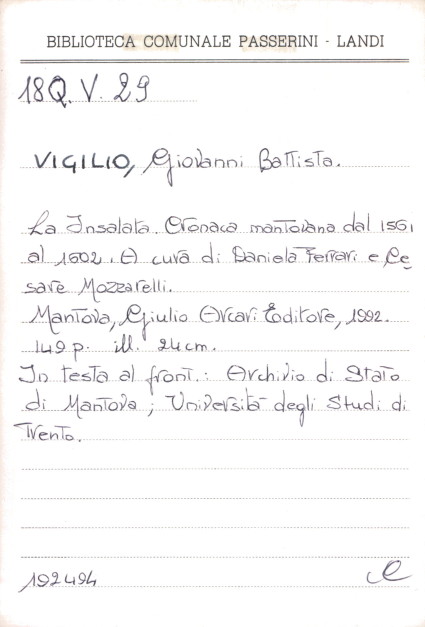 BIBLIOTECA COMUNALE PASSERINI - LANDI
18Q. V. 29
VIGILIO, Giovanni Battista.
La Insalata. Cronaca mantovana dal 1561
al 1602. A cura di Daniela Ferrari e Ce
sare Mozzarelli.
Mantova, Giulio Arcari Editore, 1992.
149 p. ill. 24 cm.
In testa al front.: Archivio di Stato
di Mantova; Università degli Studi di
Trento.
192494